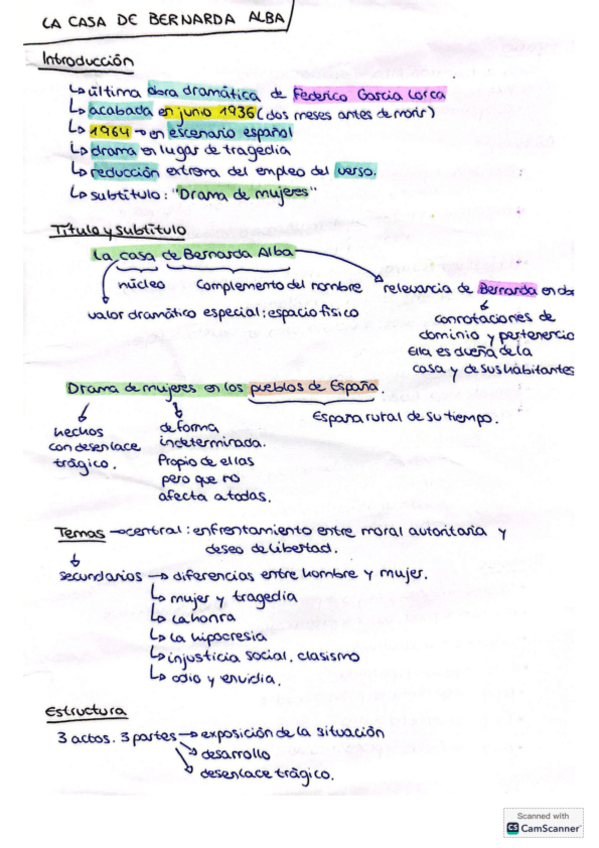 LA CASA DE BERNARDA ALBA
Introducción
↳ última obra dramática de Federico García Lorca
↳ acabada en junio 1936 (dos meses antes de morir)
↳ 1964 → en escenario español
↳ drama en lugar de tragedia
↳ reducción extrema del empleo del verso.
↳ subtítulo: "Drama de mujeres"
Título y subtítulo
La casa de Bernarda Alba
núcleo Complemento del nombre
relevancia de Bernarda en obr
valor dramático especial: espacio físico
connotaciones de
dominio y pertenencia
Ella es dueña de la
casa y de sus habitantes
Drama de mujeres en los pueblos de España.
España rural de su tiempo.
hechos
con desenlace
trágico.
de forma
indeterminada.
Propio de ellas
pero que no
afecta a todas.
Temas → central: enfrentamiento entre moral autoritaria y
deseo de libertad.
secundarios → diferencias entre hombre y mujer.
↳ mujer y tragedia
↳ La honra
↳ La hipocresia
↳ injusticia social, clasismo
↳ odio y envidia.
Estructura
3 actos. 3 partes → exposición de la situación
↘ desarrollo
↘ desenlace trágico.
Scanned with
CS CamScanner